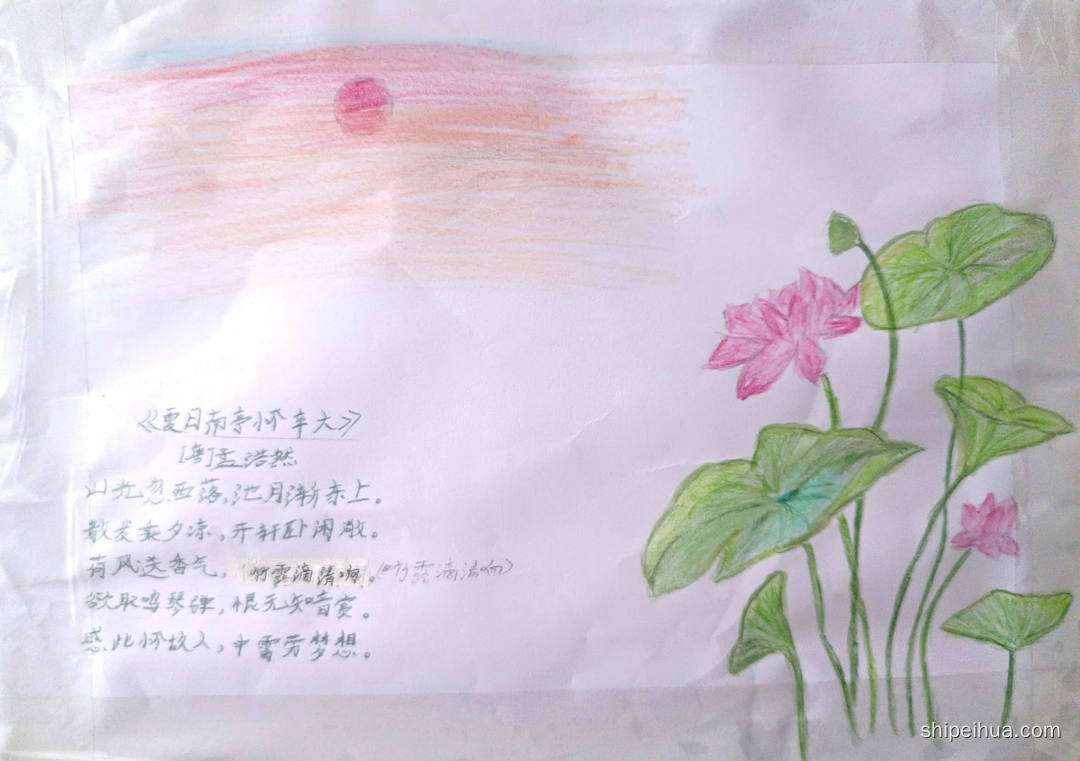 《夏日南亭怀辛大》
[唐]孟浩然
山光忽西落,池月渐东上。
散发乘夕凉,开轩卧闲敞。
荷风送香气,竹露滴清响。(竹露滴清响)
欲取鸣琴弹,恨无知音赏。
感此怀故人,中霄劳梦想。
shipeihua.com